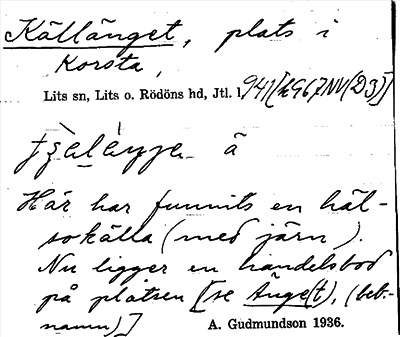 Källänget, plats i
Korsta,
Lits sn, Lits o. Rödöns hd, Jtl. 1,941[h967NV(D3)]
ä
Här har funnits en häl-
sokälla (med järn).
Nu ligger en handelsbod
på platsen [se Änge(t), (beb.-
namn)]
A. Gudmundson 1936.